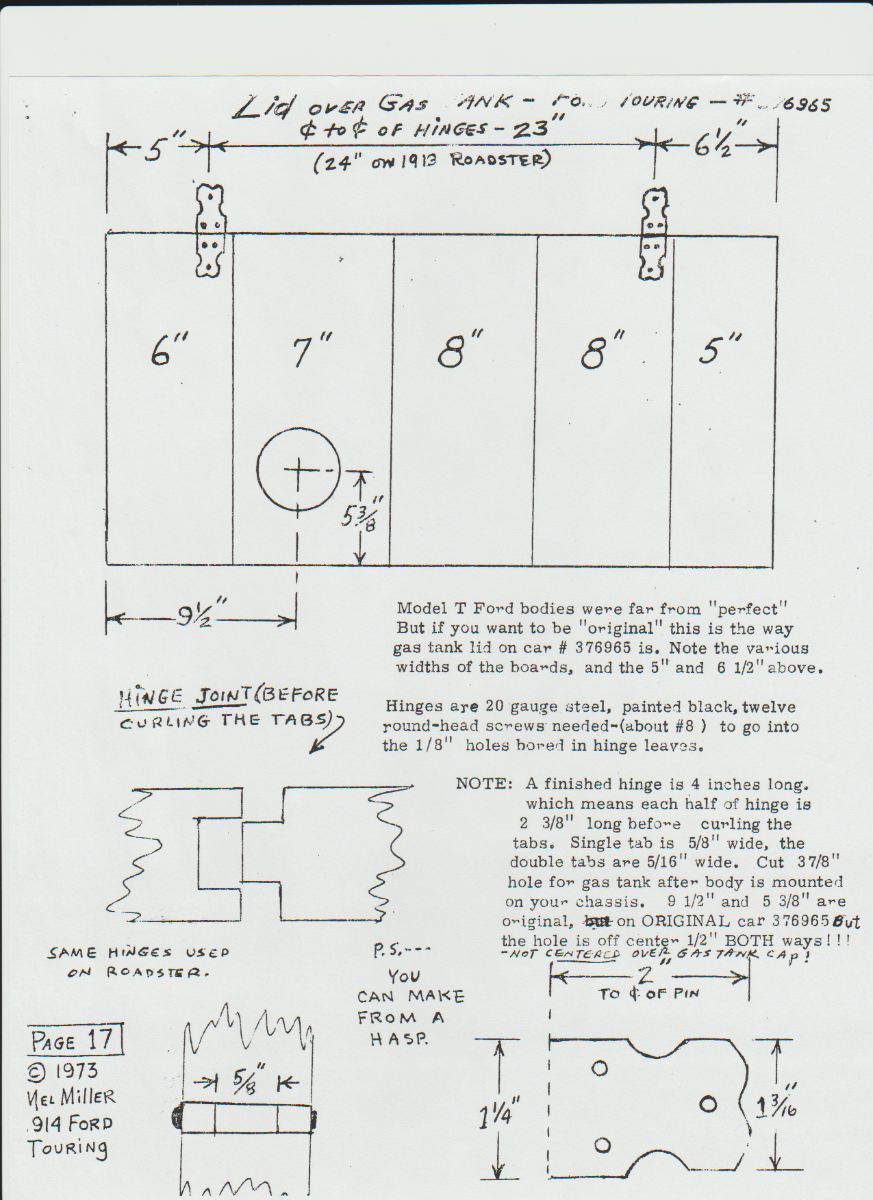 Lid over Gas ANK - Fo TOURING - # 6965
₵ to ₵ OF HINGES - 23"
5"
6½"
(24" ON 1913 ROADSTER)
6"
7"
8"
8"
5"
5⅜"
9½"
Model T Ford bodies were far from "perfect"
But if you want to be "original" this is the way
gas tank lid on car # 376965 is. Note the various
widths of the boards, and the 5" and 6 1/2" above.
HINGE JOINT (BEFORE
CURLING THE TABS)
Hinges are 20 gauge steel, painted black, twelve
round-head screws needed-(about #8 ) to go into
the 1/8" holes bored in hinge leaves.
NOTE: A finished hinge is 4 inches long.
which means each half of hinge is
2 3/8" long before curling the
tabs. Single tab is 5/8" wide, the
double tabs are 5/16" wide. Cut 3 7/8"
hole for gas tank after body is mounted
on your chassis. 9 1/2" and 5 3/8" are
original, but on ORIGINAL car 376965 But
the hole is off center 1/2" BOTH ways!!!
-NOT CENTERED OVER GAS TANK CAP!
SAME HINGES USED
ON ROADSTER.
P.S.---
YOU
CAN MAKE
FROM A
HASP.
2"
TO ₵ OF PIN
PAGE 17
© 1973
MEL MILLER
914 FORD
TOURING
5/8"
1¼"
1 3/16"